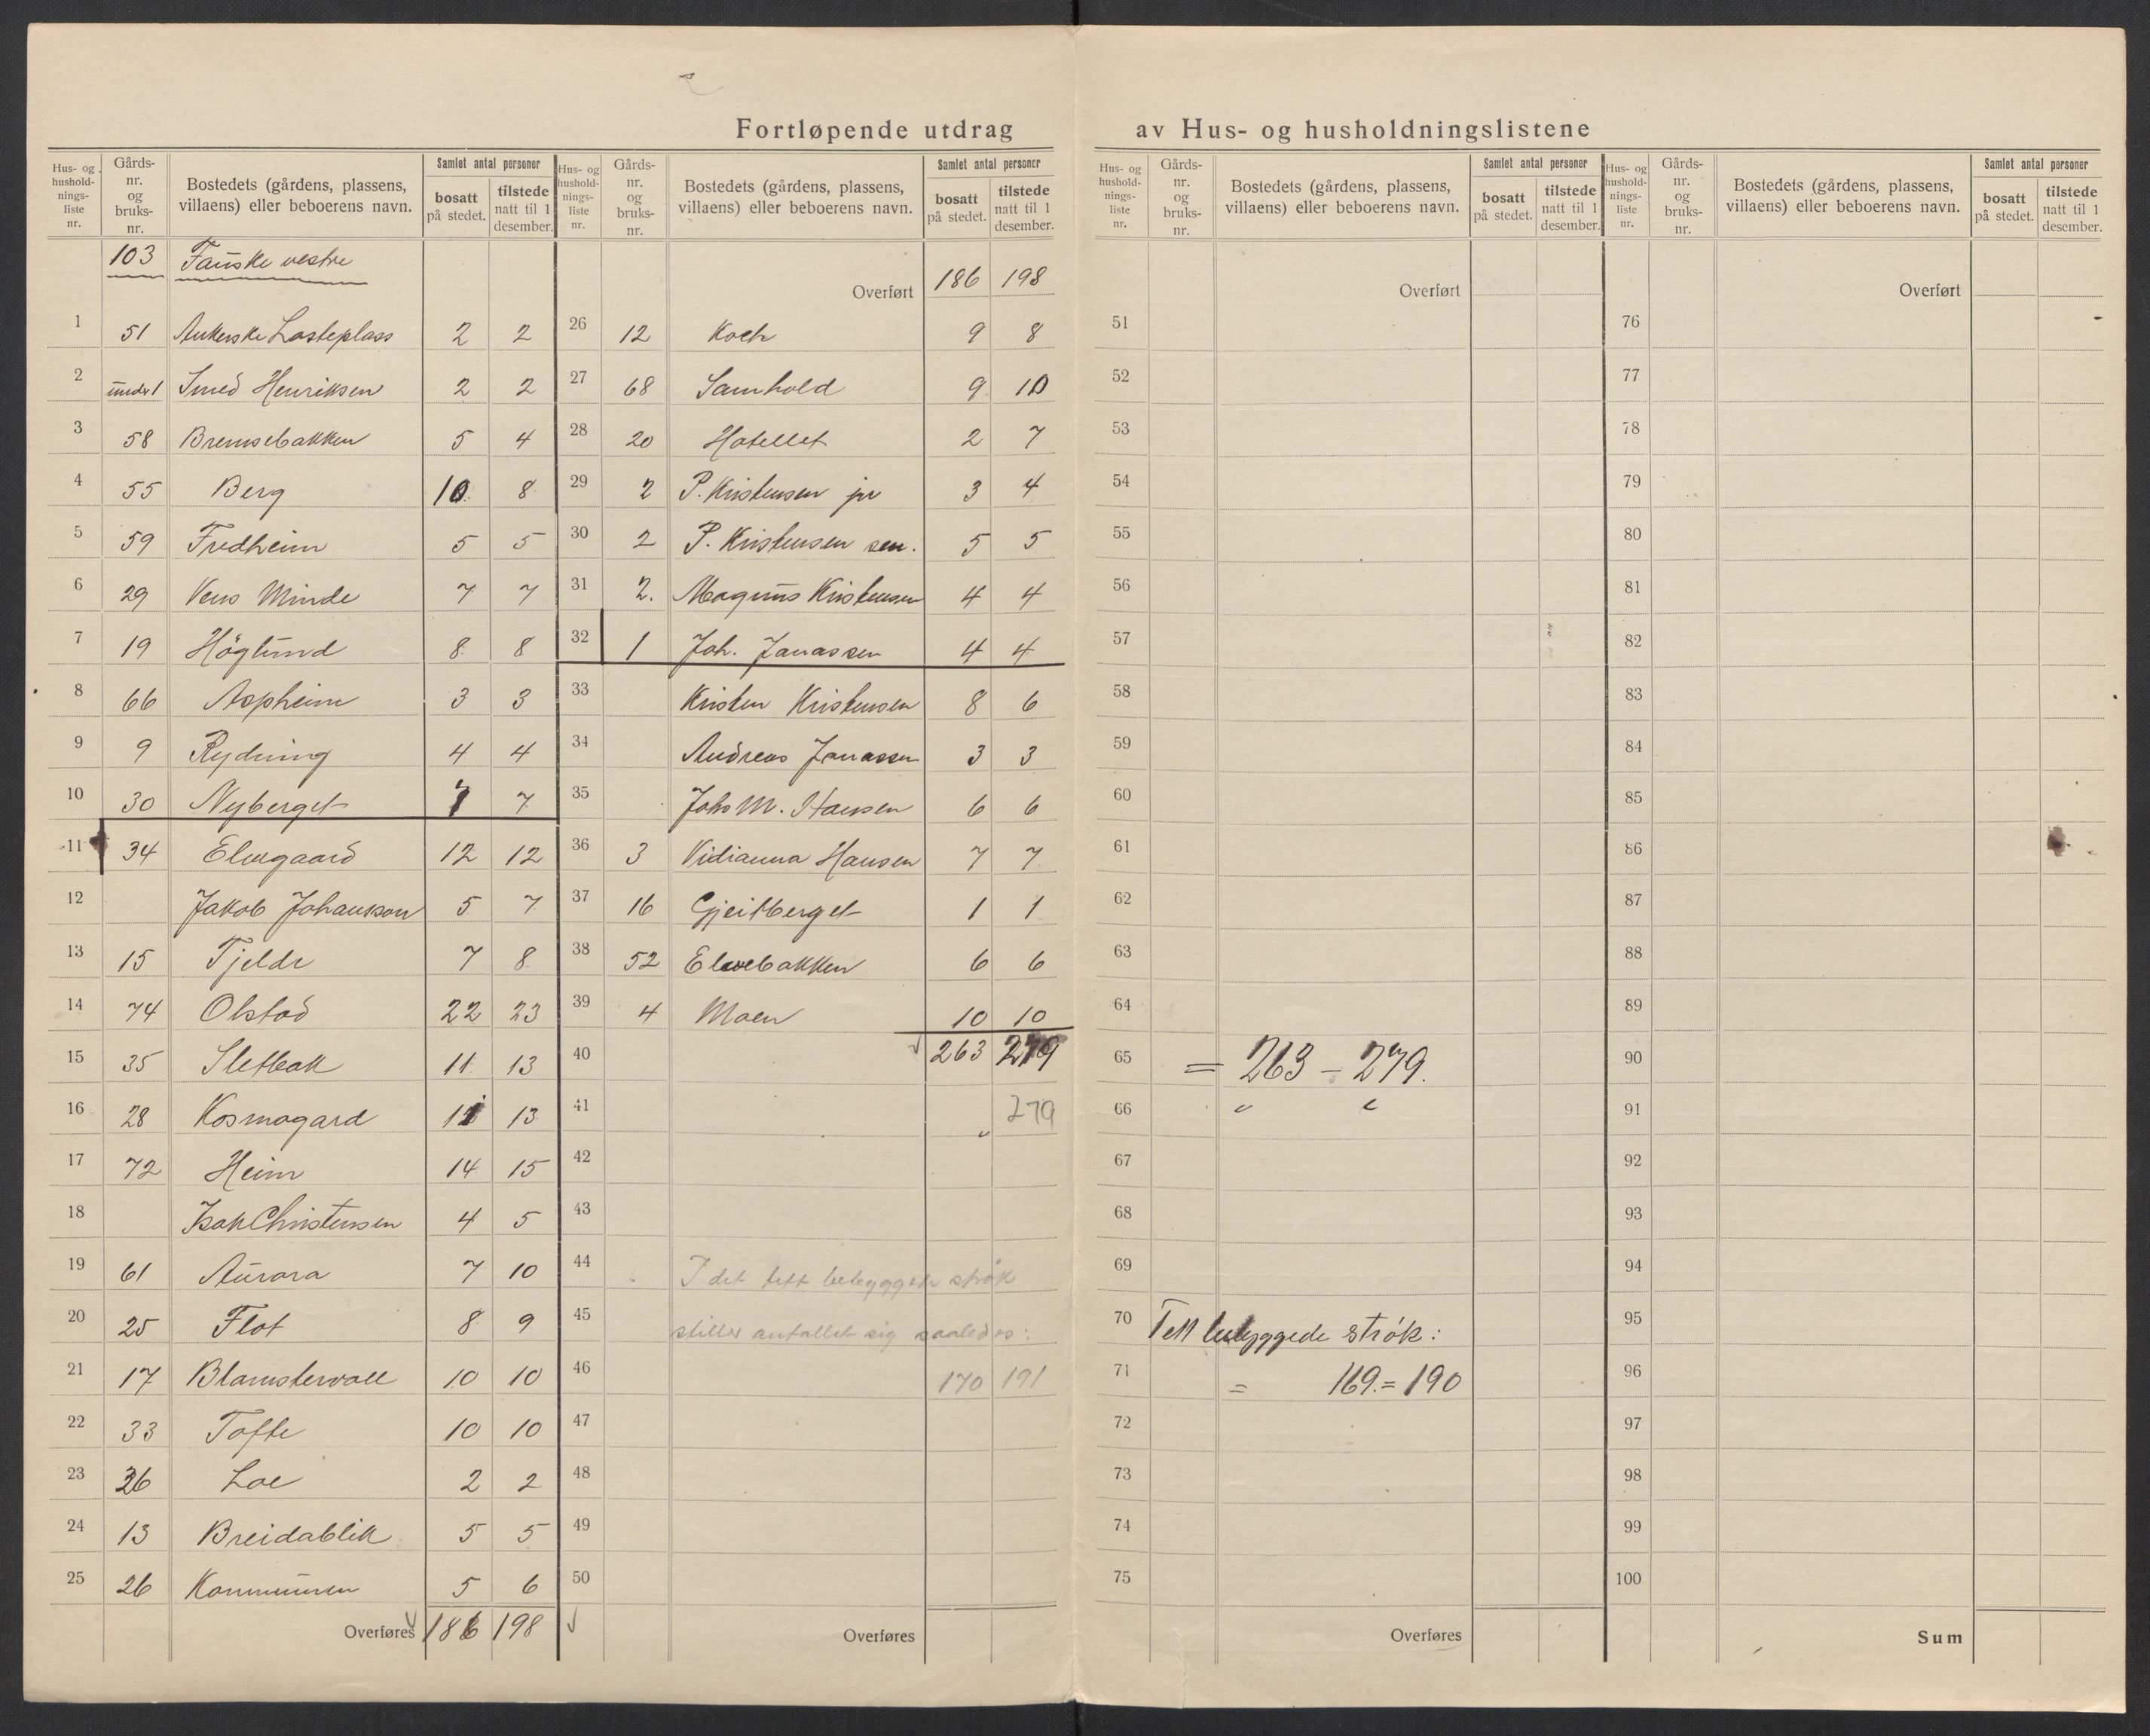 Fortløpende utdrag av Hus- og husholdningslistene
Hus- og hushold-nings-liste nr. | Gårds-nr. og bruks-nr. | Bostedets (gårdens, plassens, villaens) eller beboerens navn. | Samlet antal personer | bosatt på stedet. | tilstede natt til 1 desember.
103 Fauske vestre
1 51 Ankerske Lasteplass 2 2
2 under 1 Smed Henriksen 2 2
3 58 Bremsebakken 5 4
4 55 Berg 10 8
5 59 Fredheim 5 5
6 29 Vens Minde 7 7
7 19 Höglund 8 8
8 66 Aspheim 3 3
9 9 Rydning 4 4
10 30 Nyberget 7 7
11 34 Elvegaard 12 12
12 Jakob Johansson 5 7
13 15 Tjeldr 7 8
14 74 Olstad 22 23
15 35 Sletbak 11 13
16 28 Kosmogard 11 13
17 72 Heim 14 15
18 Isak Christensen 4 5
19 61 Aurora 7 10
20 25 Flot 8 9
21 17 Blomstervall 10 10
22 33 Tofte 10 10
23 36 Loe 2 2
24 13 Breidablik 5 5
25 26 Kommunen 5 6
Overføres 186 198
Hus- og hushold-nings-liste nr. | Gårds-nr. og bruks-nr. | Bostedets (gårdens, plassens, villaens) eller beboerens navn. | Samlet antal personer | bosatt på stedet. | tilstede natt til 1 desember.
Overført 186 198
26 12 Koch 9 8
27 68 Samhold 9 10
28 20 Hotellet 2 7
29 2 P. Kristensen jr 3 4
30 2 P. Kristensen sen. 5 5
31 2. Magnus Kristensen 4 4
32 1 Joh. Jonassen 4 4
33 Kristen Kristensen 8 6
34 Andreas Jonassen 3 3
35 Johs M. Hansen 6 6
36 3 Vidianna Hansen 7 7
37 16 Gjeitberget 1 1
38 52 Elvebakken 6 6
39 4 Moen 10 10
40 263 279
41 279
42
43
44 I det tett bebyggede strøk
45 stiller antallet sig saaledes:
46 170 191
47
48
49
50
Overføres
Hus- og hushold-nings-liste nr. | Gårds-nr. og bruks-nr. | Bostedets (gårdens, plassens, villaens) eller beboerens navn. | Samlet antal personer | bosatt på stedet. | tilstede natt til 1 desember.
Overført
51
52
53
54
55
56
57
58
59
60
61
62
63
64
65 = 263 - 279.
66
67
68
69
70 Tett bebyggede strøk:
71 = 169. = 190
72
73
74
75
Overføres
Hus- og hushold-nings-liste nr. | Gårds-nr. og bruks-nr. | Bostedets (gårdens, plassens, villaens) eller beboerens navn. | Samlet antal personer | bosatt på stedet. | tilstede natt til 1 desember.
Overført
76
77
78
79
80
81
82
83
84
85
86
87
88
89
90
91
92
93
94
95
96
97
98
99
100
Sum